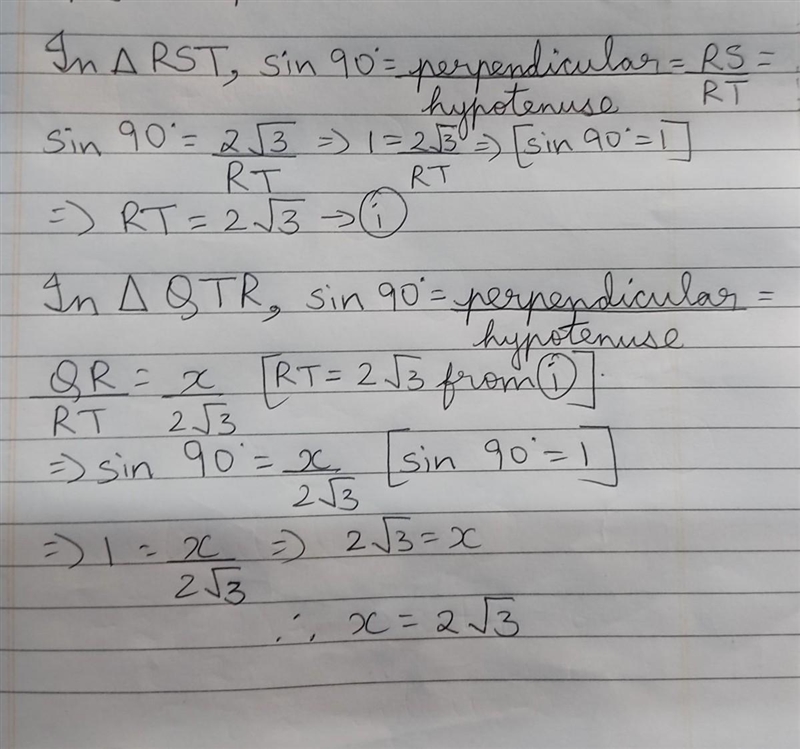 In Δ RST, sin 90° = perpendicular/hypotenuse = RS/RT =
sin 90° = 2√3/RT => 1 = 2√3/RT => [sin 90° = 1]
=> RT = 2√3 → ⓘ
In Δ QTR, sin 90° = perpendicular/hypotenuse =
QR/RT = x/2√3 [RT = 2√3 from ⓘ].
=> sin 90° = x/2√3 [sin 90° = 1]
=> 1 = x/2√3 => 2√3 = x
∴ x = 2√3